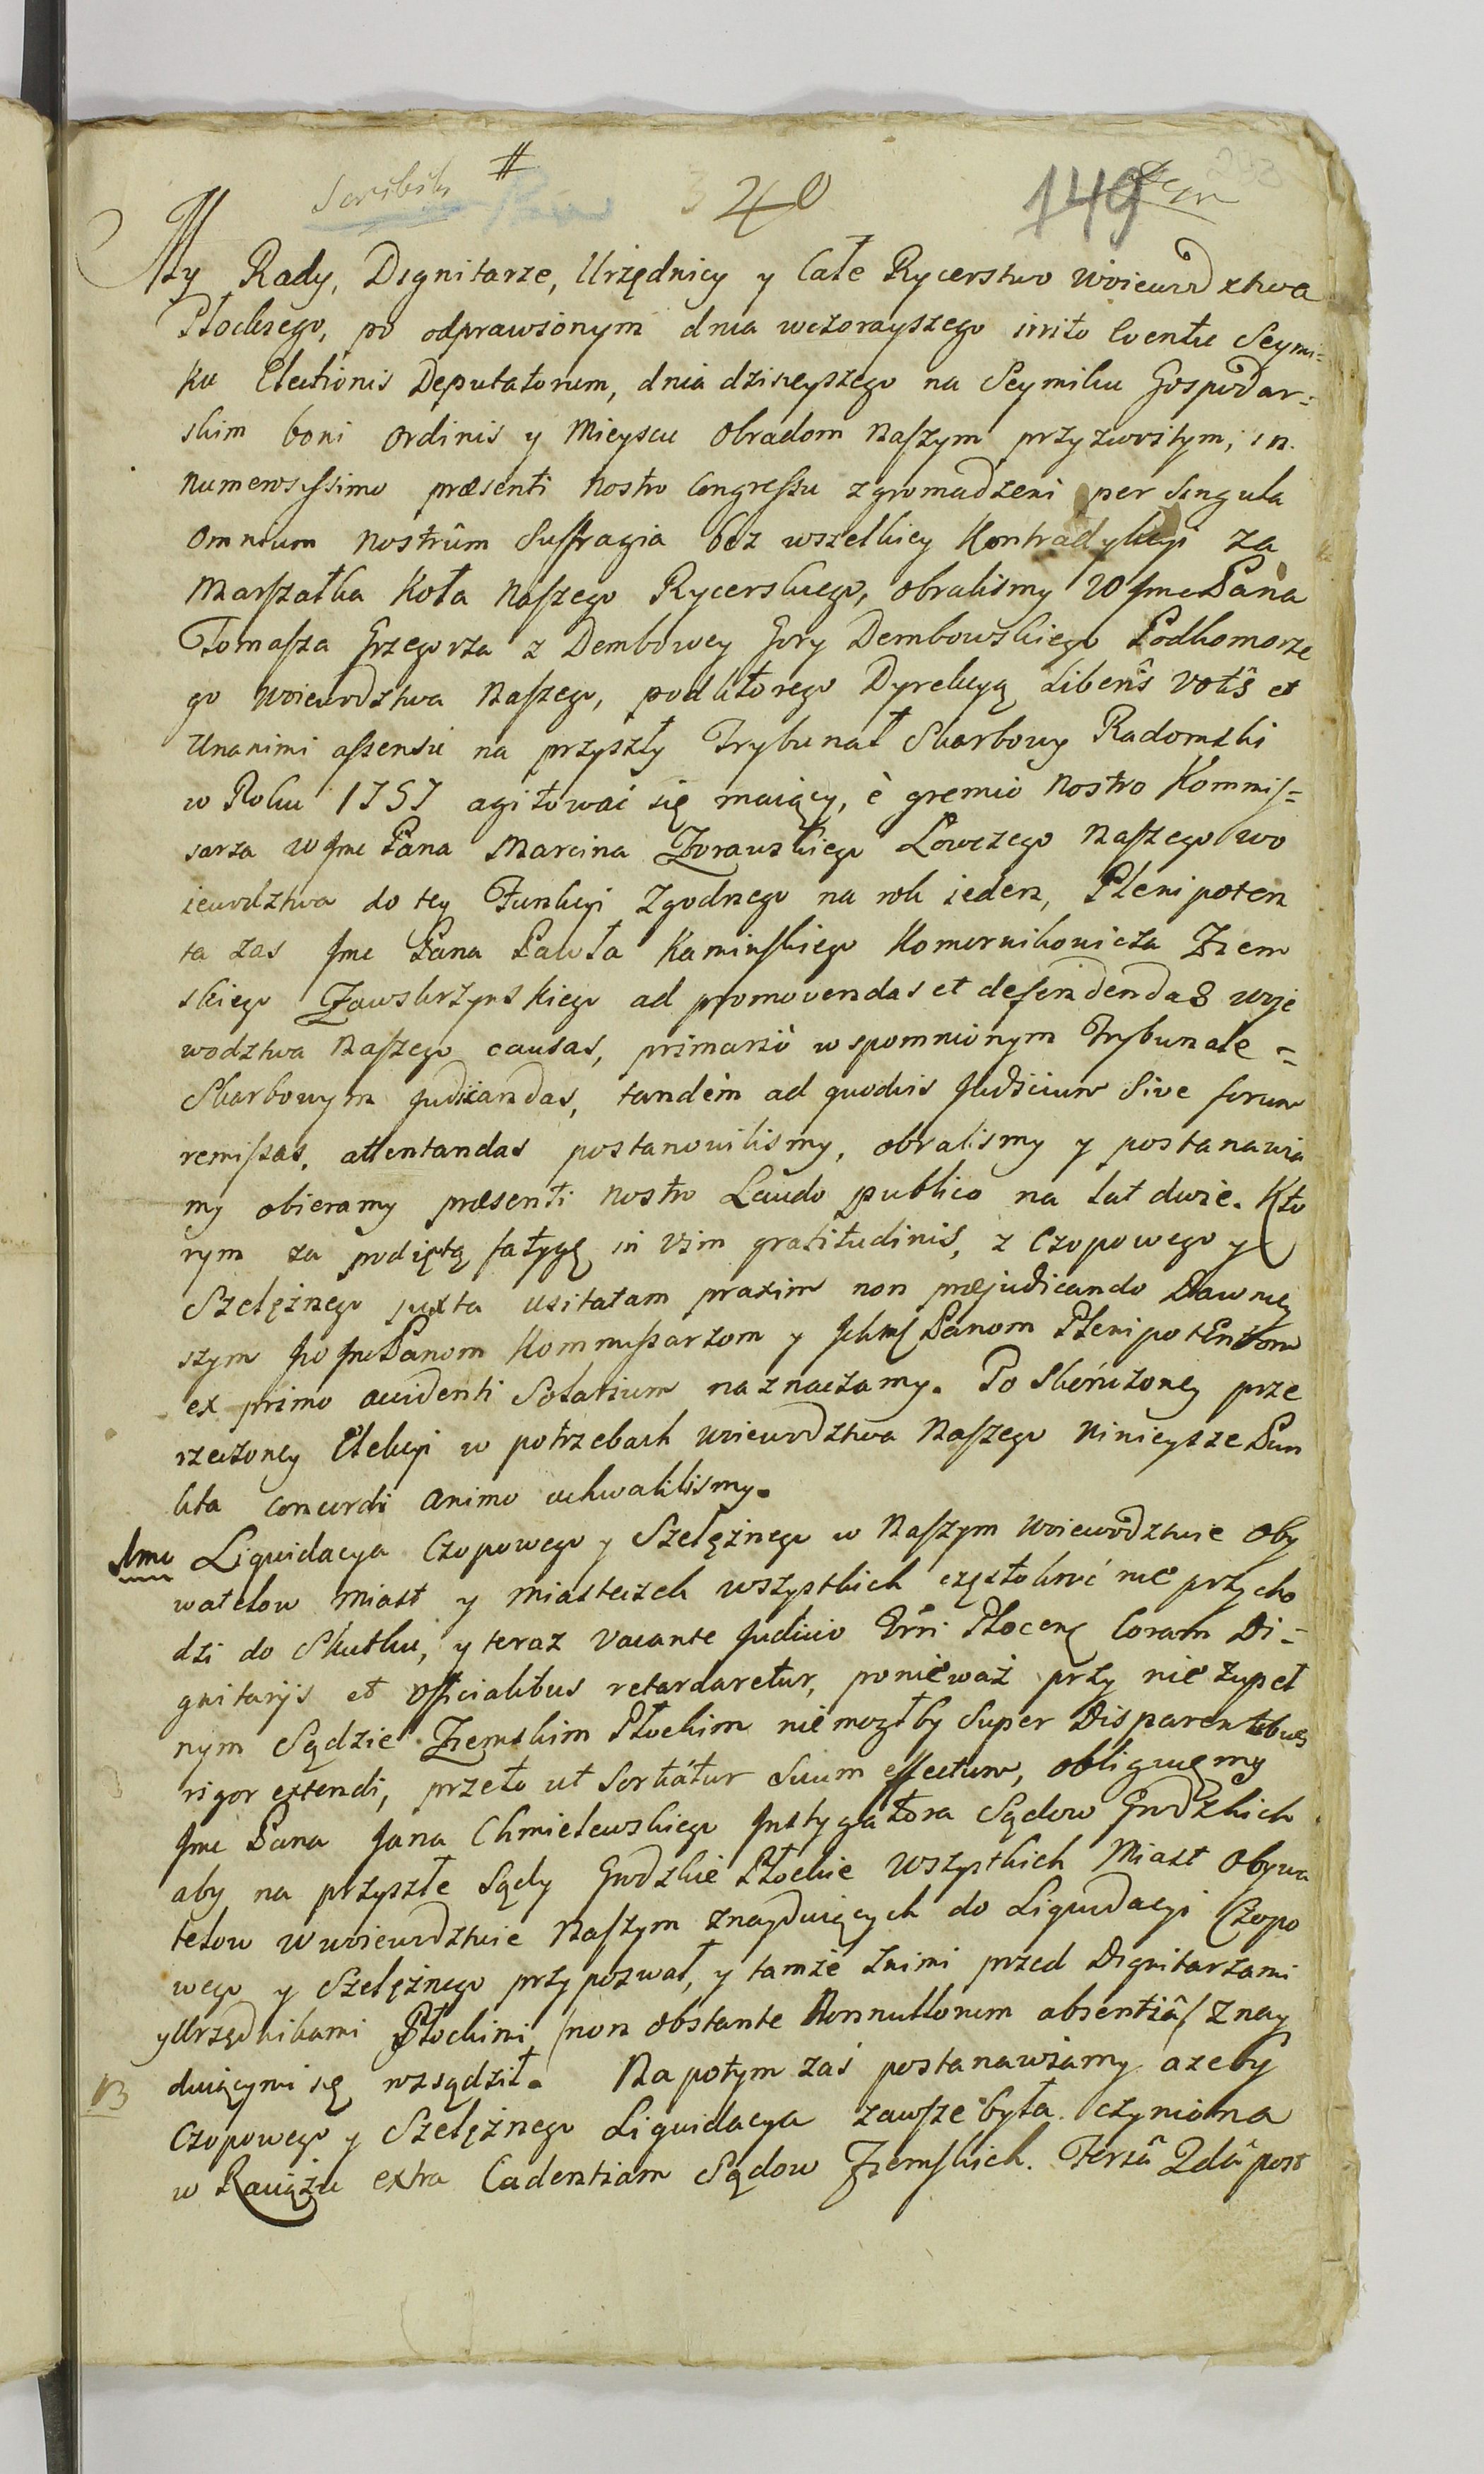 #
40
149
My Rady, Dignitarze, Urzędnicy y Całe Rycerstwo Woiewodztwa
Płockiego, po odprawionym dnia wczorayszego irrito Eventu Seymi=
ku Electionis Deputatorum, dnia dzisieyszego na Seymiku Gospodar=
skim boni Ordinis y Mieyscu Obradom Naszym przyzwoitym, in
Numerosissimo præsenti Nostro Congressu zgromadzeni per Singula
Omnium Nostrûm Suffragia bez wszelkiey Kontradykcyi za
Marszałka Koła Naszego Rycerskiego, obralismy W Jmc Pana
Tomasza Grzegorza z Dembowey Gory Dembowskiego Podkomorze
go Woiewodztwa Naszego, pod ktorego Dyrekcyą Liberîs Votîs et
Unanimi assensu na przyszły Trybunał Skarbowy Radomski
w Roku 1757 agitować się maiący, è gremio Nostro Kommis=
sarza W Jmc Pana Marcina Zorawskiego Łowczego Naszego Wo
iewodztwa do tey Funkcyi Zgodnego na rok ieden, Plenipoten
ta zas Jmc Pana Pawła Kaminskiego Komornikowicza Ziem
skiego Zawskrzynskiego ad promovendas et defendendas Woje
wodztwa Naszego causas, primariò w spomnionym Trybunale =
Skarbowym judicandas, tandèm ad quodvis Judicium Sive forum
remissas, attentandas postanowilismy, obralismy y postanawia
my obieramy præsenti Nostro Laudo publico na lat dwie. Kto
rym za podiętą fatygę in Vim gratitudinis, z Czopowego y
Szelężnego juxta usitatam praxim non præjudicando Dawniey
szym Jo Jmc Panom Kommissarzom y Ichmć Panom Plenipotentom
ex primo accidenti Solarium naznaczamy. Po Skończoney prze
rzeczoney Elekcyi w potrzebach Woiewodztwa Naszego Ninieysze Pun
kta concordi animo uchwalilismy.
1mo Liquidacya Czopowego y Szelężnego w Naszym Woiewodztwie Oby
watelow Miast y Miasteczek wszystkich częstokroć nie przycho
dzi do Skutku, y teraz Vacante Judicio Trri Płocen Coram Di=
gnitarijs et Officialibus retardaretur, ponieważ przy nie zupeł
nym Sądzie Ziemskim Płockim nie mogłby Super Disparentibus
rigor extendi, przeto ut Sortiatur Suum effectum, obliguiemy
Jmc Pana Jana Chmielewskiego Jnstygatora Sądow Grodzkich
aby na przyszłe Sądy Grodzkie Płockie Wszystkich Miast Obywa
telow w Woiewodztwie Naszym znayduiących do Liquidacyi Czopo
wego y Szelężnego przypozwał, y tamże znimi przed Dignitarzami
y Urzędnikami Płockimi /non obstante Nonnullorum absentiâ/ Znay
duiącymi się rozsądził. Na potym zaś postanawiamy ażeby
Czopowego y Szelężnego Liquidacya zawsze była czyniona
w Raciążu extra Cadentiam Sądow Ziemskich. Feriâ 2dâ post